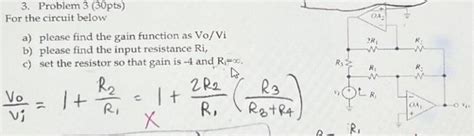 3. Problem 3 (30pts)
For the circuit below
a) please find the gain function as Vo/Vi
b) please find the input resistance Ri,
c) set the resistor so that gain is -4 and Ri=∞.
Vo/Vi = 1 + R2/R1 = 1 + 2R2/R1 (R3/(R3+R4))
X
OA2
2R1
R2
R3
R1
R2
Ri
OA1
R1